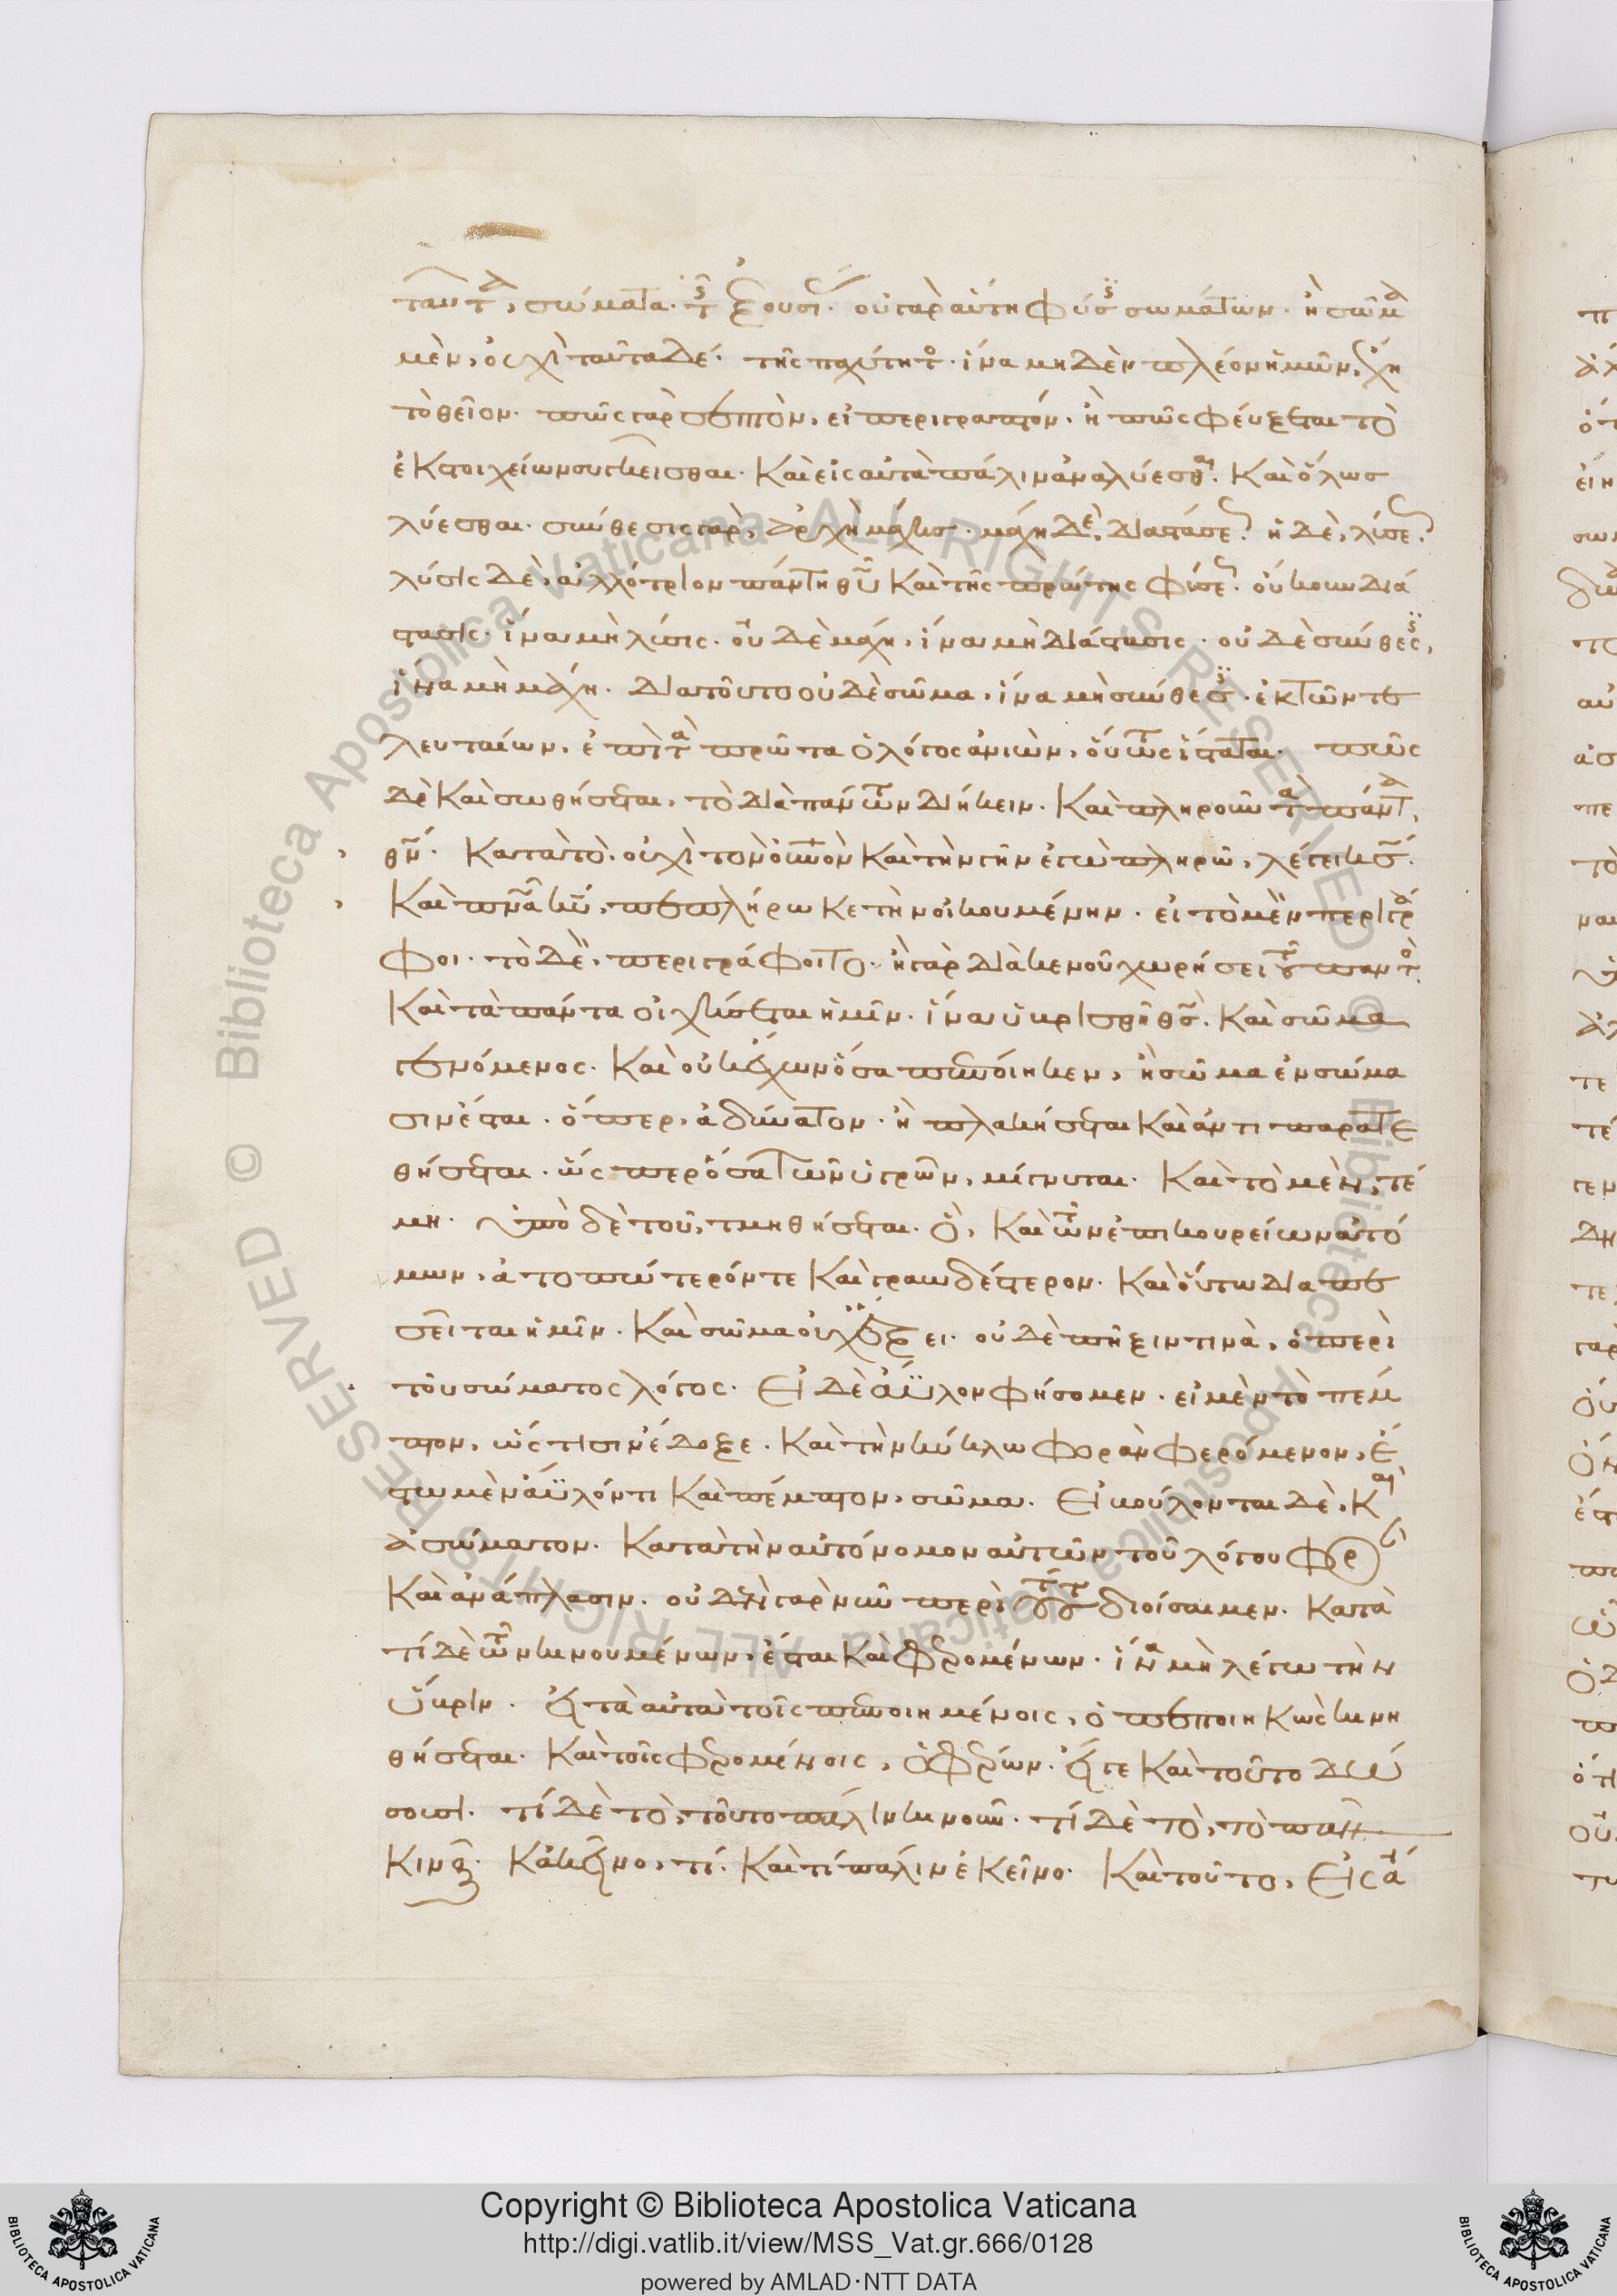 ταῦτα, σώματα· τῆς ἐξουσίας· οὐ γὰρ αὕτη φύσις σωμάτων· ἢ σῶμα
μὲν, οὐχὶ ταῦτα δέ· τῆς παχύτητος· ἵνα μηδὲν πλέον ἡμῶν, ἔχῃ
τὸ θεῖον· πῶς γὰρ σεπτὸν, εἰ περιγραπτόν· ἢ πῶς φεύξεται τὸ
ἐκ στοιχείων συγκεῖσθαι· καὶ εἰς αὐτὰ πάλιν ἀναλύεσθαι· καὶ ὅλως
λύεσθαι· σύνθεσις γὰρ, ἀρχὴ μάχης· μάχη δὲ, διαστάσεως· ἡ δὲ, λύσεως·
λύσις δὲ, ἀλλότριον πάντη θεοῦ καὶ τῆς πρώτης φύσεως· οὔκουν διά
στασις· ἵνα μὴ λύσις· οὐδὲ μάχη, ἵνα μὴ διάστασις· οὐδὲ σύνθεσις,
ἵνα μὴ μάχη· διατοῦτο οὐδὲ σῶμα, ἵνα μὴ σύνθεσις· ἐκ τῶν τε
λευταίων, ἐπὶ τὰ πρῶτα ὁ λόγος ἀνιὼν, οὕτως ἵσταται· πῶς
δὲ καὶ σωθήσεται, τὸ διὰ πάντων διήκειν· καὶ πληροῦν τὰ πάντα,
θεόν· κατὰ τὸ, οὐχὶ τὸν οὐρανὸν καὶ τὴν γῆν ἐγὼ πληρῶ, λέγει κύριος·
καὶ πνεῦμα κυρίου, πεπλήρωκε τὴν οἰκουμένην· εἰ τὸ μὲν περιγρά
φοι· τὸ δὲ, περιγράφοιτο· ἢ γὰρ διὰ κενοῦ χωρήσει τοῦ παντὸς·
καὶ τὰ πάντα οἰχήσεται ἡμῖν· ἵνα ὑβρισθῇ θεὸς· καὶ σῶμα
γενόμενος· καὶ οὐκ ἔχων ὅσα πεποίηκεν, ἢ σῶμα ἐν σώμα
σιν ἔσται· ὅπερ, ἀδύνατον· ἢ πλακήσεται καὶ ἀντιπαρατε
θήσεται· ὥσπερ ὅσα τῶν ὑγρῶν, μίγνυται· καὶ τὸ μὲν, τέ
μῃ· ὑπὸ δὲ τοῦ, τμηθήσεται· ὃ, καὶ τῶν ἐπικουρείων ἀτό
μων, ἀτοπώτερόν τε καὶ γραωδέστερον· καὶ οὕτω διαπε
σεῖται ἡμῖν· καὶ σῶμα οὐχ ἕξει· οὐδὲ πῆξιν τινὰ, ὁ περὶ
τοῦ σώματος λόγος· Εἰ δὲ ἄϋλον φήσομεν· εἰ μὲν τὸ πέμ
πτον, ὥς τισιν ἔδοξε· καὶ τὴν κύκλω φορὰν φερόμενον, ἔ
στω μὲν ἄϋλόν τι καὶ πέμπτον, σῶμα· Εἰ βούλονται δὲ, καὶ
ἀσώματον· κατὰ τὴν αὐτόνομον αὐτῶν τοῦ λόγου φορὰν
καὶ ἀνάπλασιν· οὐδὲν γὰρ νῦν περὶ τούτου διοίσομεν· κατὰ
τί δὲ τῶν κινουμένων, ἔσται καὶ φερομένων· ἵνα μὴ λέγω τὴν
ὕβριν· εἰ τὰ αὐτὰ τοῖς πεποιημένοις, ὁ πεποιηκὼς κινη
θήσεται· καὶ τοῖς φερομένοις, ὁ φέρων· εἴ γε καὶ τοῦτο δώ
σουσι· τί δὲ τὸ, τοῦτο πάλιν κινοῦν· τί δὲ τὸ, τὸ πᾶν
κινοῦν· κἀκεῖνο, τί· καὶ τί πάλιν ἐκεῖνο· καὶ τοῦτο, Εἰς ἄ
Copyright © Biblioteca Apostolica Vaticana
http://digi.vatlib.it/view/MSS_Vat.gr.666/0128
powered by AMLAD·NTT DATA